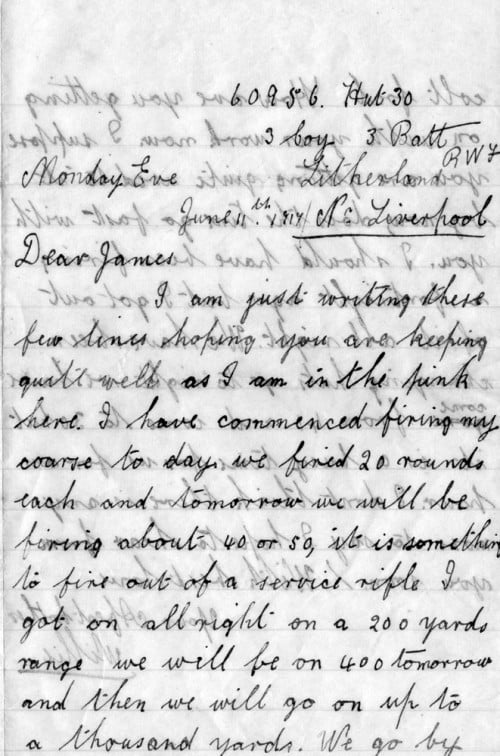 60956. Hut 30
3 Coy 3. Batt
R W F
Monday Eve Litherland
June 11th 1917 Nr Liverpool
Dear James
I am just writing these
few lines hoping you are keeping
quit well as I am in the pink
here. I have commenced firing my
coarse to day. we fired 20 rounds
each and tomorrow we will be
firing about 40 or 50, it is somethin
to fire out of a service rifle I
got on allright on a 200 yards
range we will be on 400 tomorrow
and then we will go on up to
a thousand yards. We go by